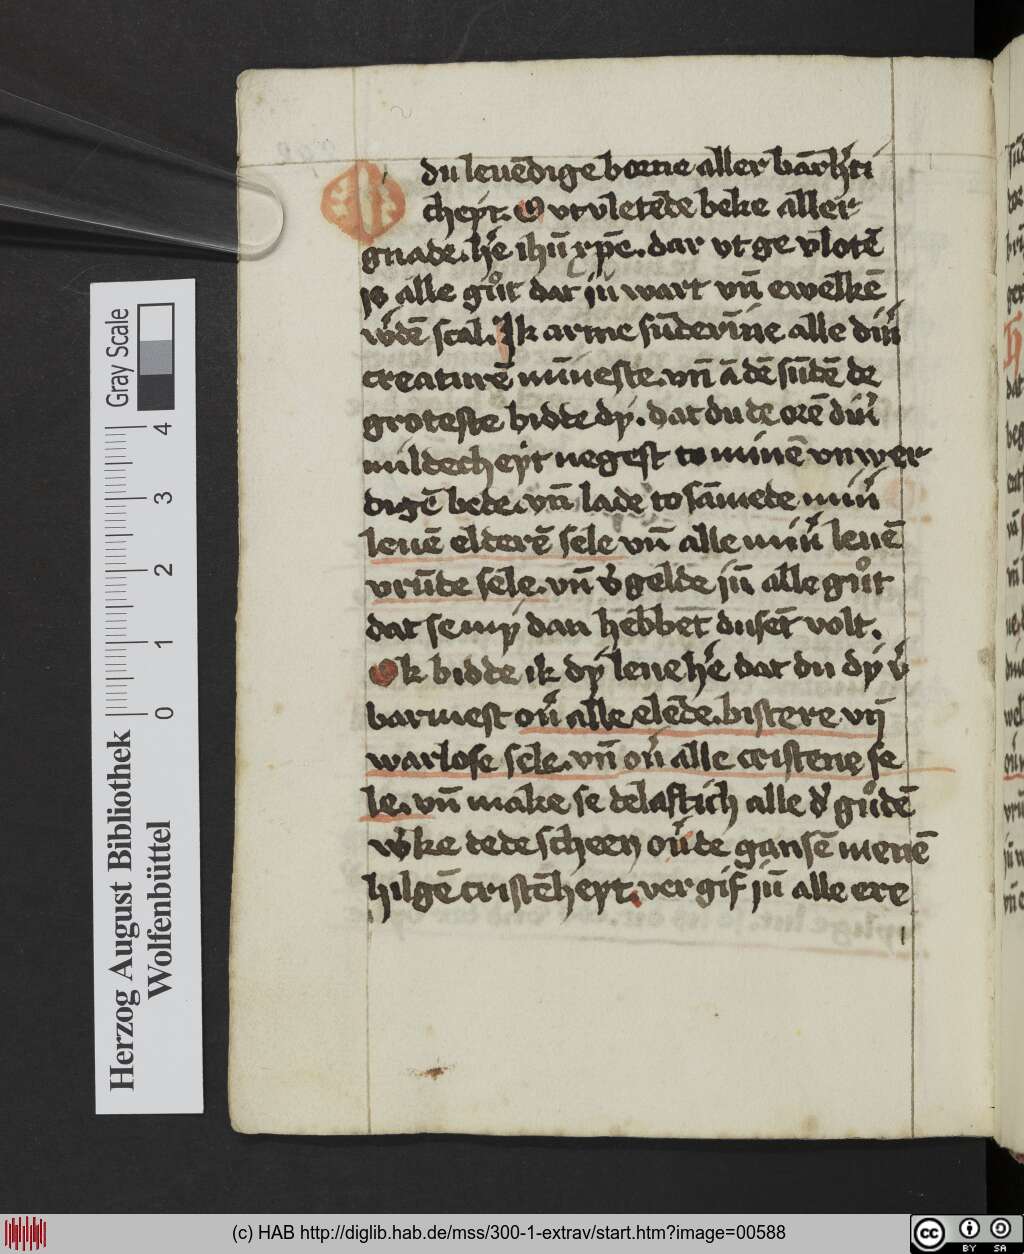 O du leuēdige borne aller barh̄ti
cheyt. O vtvletēde beke aller
gnade. hʼe ihū xp̄e. dar vt ge vlotē
is alle gůt dat jū wart vn̄ ewelkē
wʼdē scal. Ik arme sūderīne alle dinʼ
creaturē mīneste. vn̄ ā dē sūdē de
groteste bidde dy. dat du de orē dinʼ
mildecheyt negest to minē vnwer
digē bede. vn̄ lade to sāmede minʼ
leuē elderē sele vn̄ alle minʼ leuē
vrūde sele. vn̄ vʼgelde jū alle gůt
dat se my dan hebbēt vn̄
Ok bidde ik dy leue hʼe dat du dy vʼ
barmest ouʼ alle elēde. bistere vn̄
warlose sele. vn̄ ouʼ alle cristene se
le. vn̄ make se delaftich alle dʼ gůdē
wʼke de de scheen ouʼ de gansē menē
hilgē cristēheyt. vergif jū alle ere
Gray Scale
4
3
2
1
0
Herzog August Bibliothek
Wolfenbüttel
(c) HAB http://diglib.hab.de/mss/300-1-extrav/start.htm?image=00588
cc BY SA